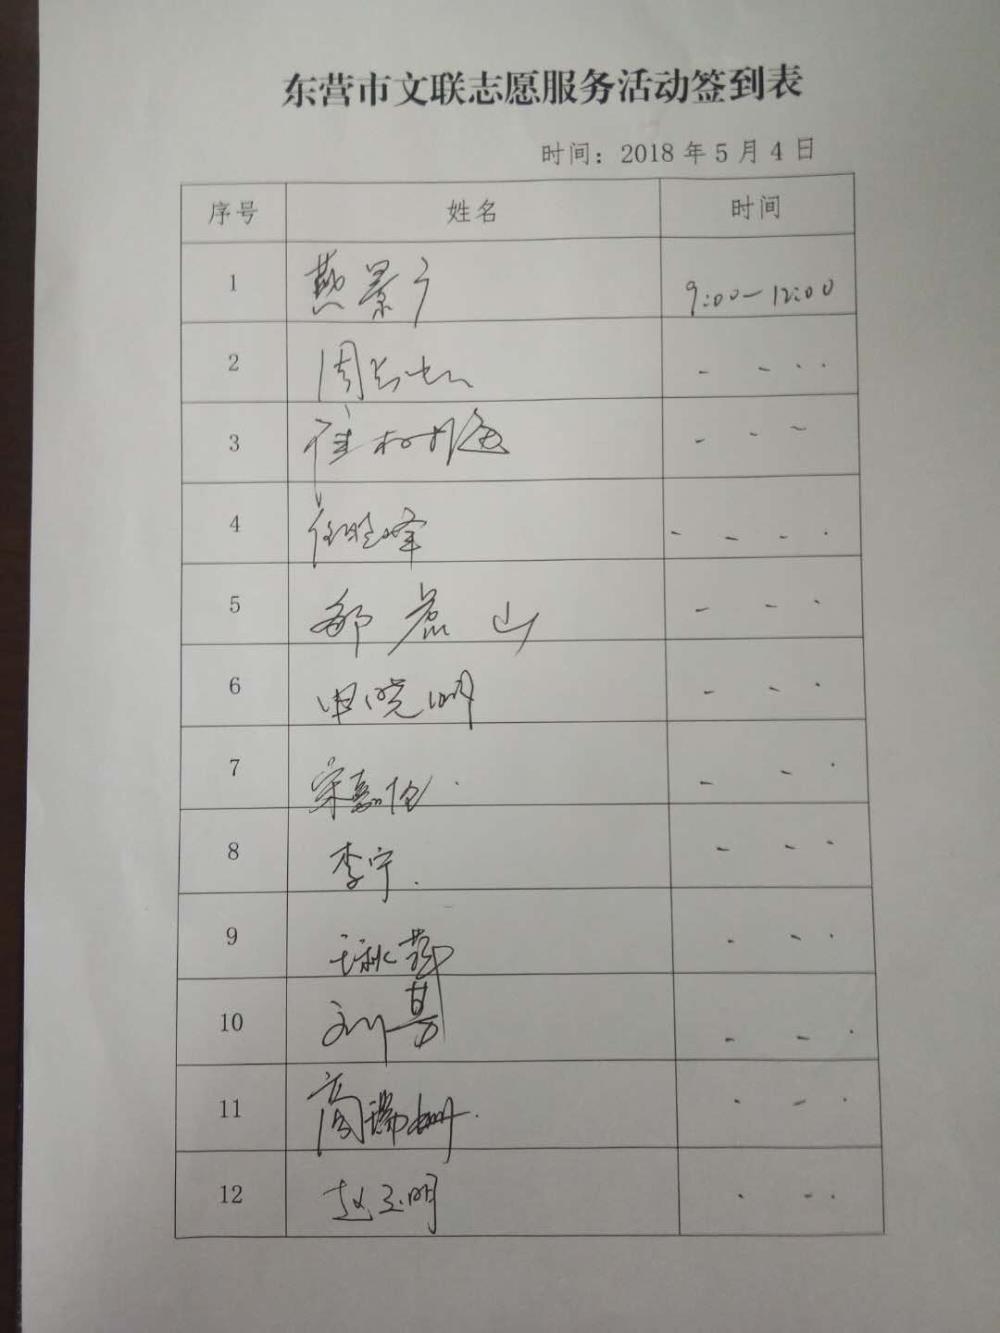 东营市文联志愿服务活动签到表
时间：2018年5月4日
序号 姓名 时间
1 燕景广 9:00—12:00
2 周
3 崔树海
4 任晓峰
5 部磊山
6 申晓明
7 宋嘉伦
8 李宁
9
10 刘勇
11 商瑞
12 赵玉明